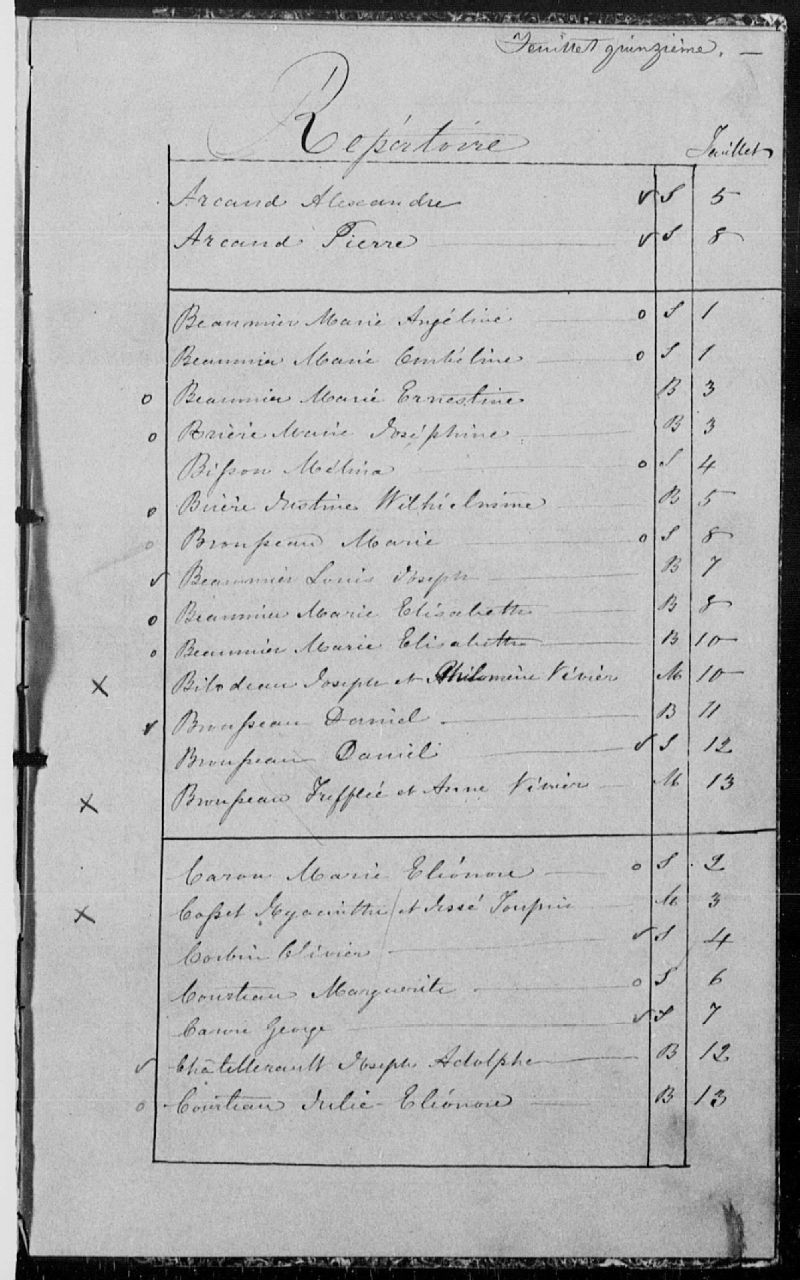 Feuillet quinzième. —
Répertoire
Feuillet
Arcand Alexandre v S 5
Arcand Pierre v S 8
Beaumier Marie Angéline o S 1
Beaumier Marie Ombéline o S 1
o Beaumier Marie Ernestine B 3
o Brière Marie Joséphine B 3
Bisson Mélina o S 4
o Brière Justine Wilhielmine B 5
o Brousseau Marie o S 8
v Beaumier Louis Joseph B 7
o Beaumier Marie Elisabeth B 8
o Beaumier Marie Elisabeth B 10
x Bilodeau Joseph et Philomène Vivier M 10
v Brousseau Daniel B 11
Brousseau Daniel v S 12
x Brousseau Trefflée et Anne Vivier M 13
Caron Marie Eliónore o S 2
x Cosset Hyacinthe et Jessé Toupin M 3
Corbin Olivier v S 4
Courteau Marguerite o S 6
Caron George v S 7
v Châtellerault Joseph Adolphe B 12
o Courteau Julie Eliónore B 13